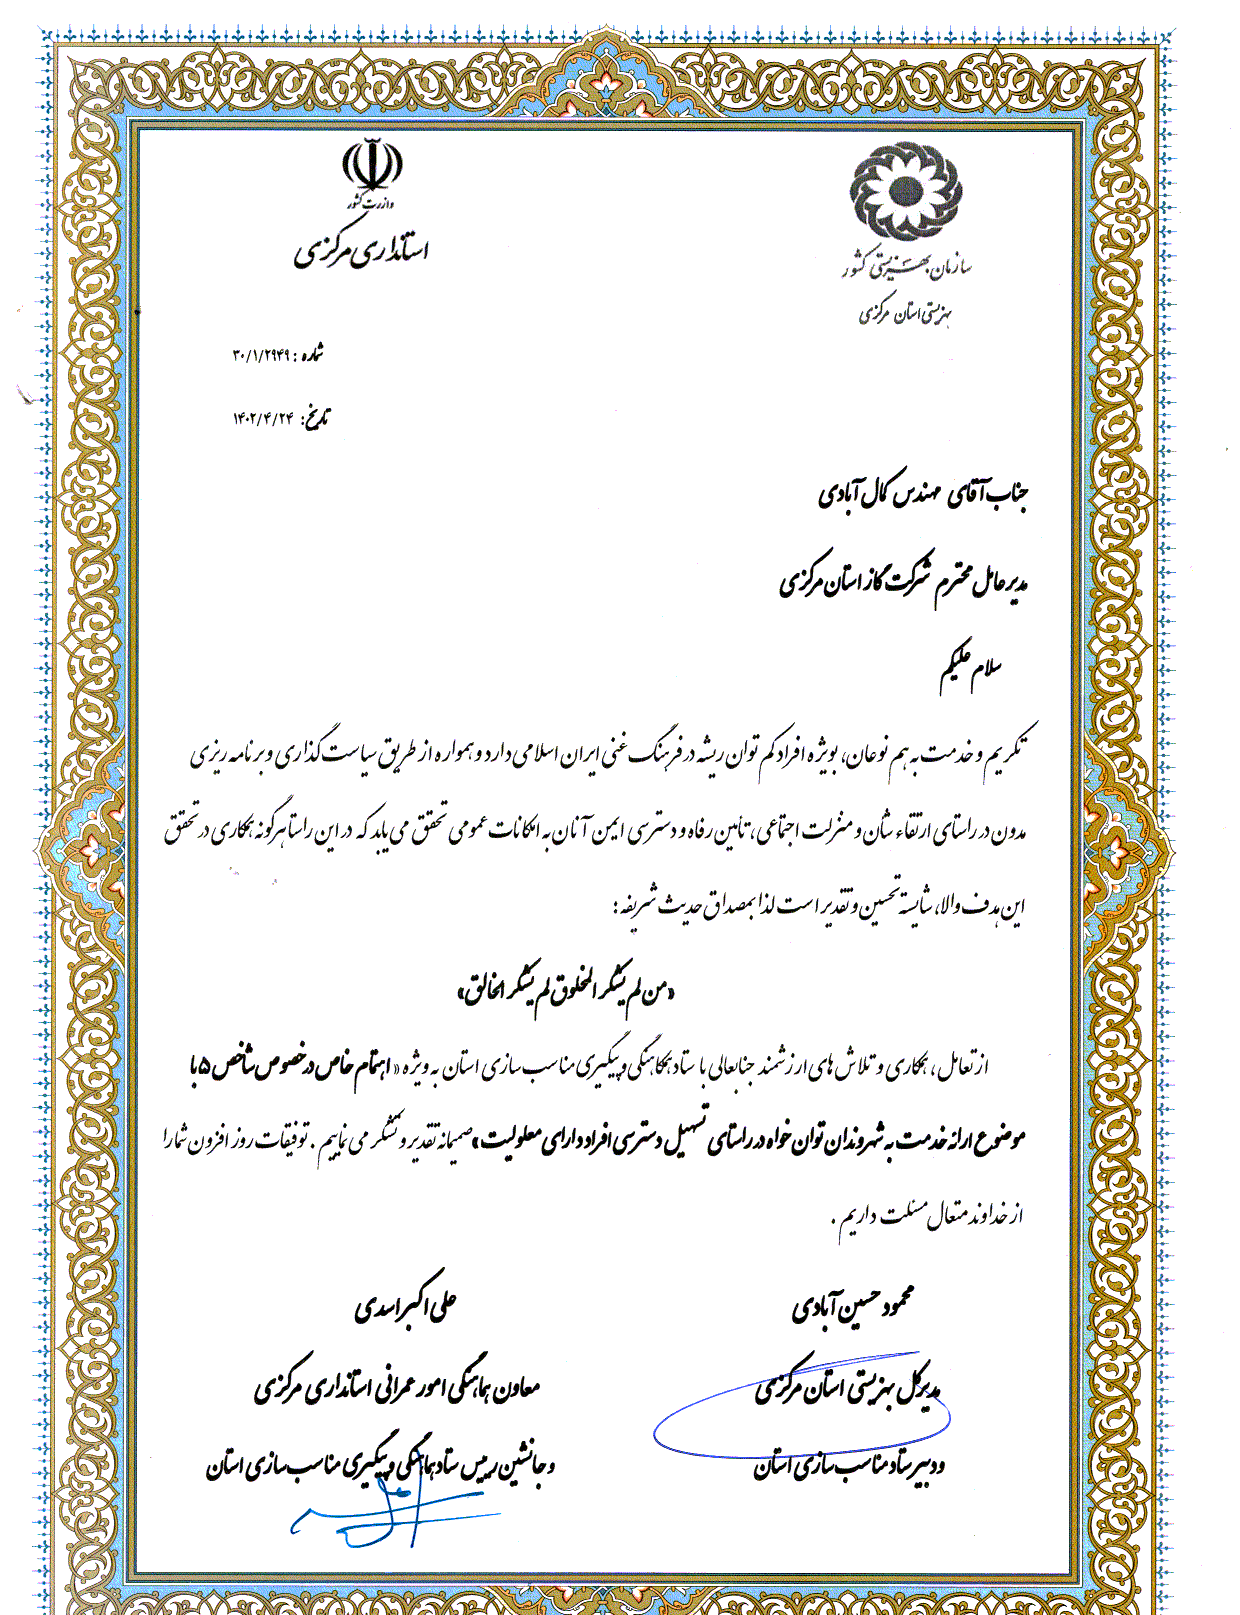 وزارت کشور
استانداری مرکزی
سازمان بهزیستی کشور
بهزیستی استان مرکزی
شماره : ۳۰/۱/۲۹۴۹
تاریخ: ۱۴۰۲/۴/۲۴
جناب آقای مهندس کمال آبادی
مدیرعامل محترم شرکت گاز استان مرکزی
سلام علیکم
تکریم و خدمت به هم نوعان، بویژه افراد کم توان ریشه در فرهنگ غنی ایران اسلامی دارد و همواره از طریق سیاست گذاری و برنامه ریزی
مدون در راستای ارتقاء شأن و منزلت اجتماعی، تأمین رفاه و دسترسی ایمن آنان به امکانات عمومی تحقق می یابد که در این راستا هرگونه همکاری در تحقق
این هدف والا، شایسته تحسین و تقدیر است لذا بمصداق حدیث شریفه :
«من لم یشکر المخلوق لم یشکر الخالق»
از تعامل ، همکاری و تلاش های ارزشمند جنابعالی با ستاد هماهنگی و پیگیری مناسب سازی استان به ویژه « اهتمام خاص در خصوص شاخص ۵ با
موضوع ارائه خدمت به شهروندان توان خواه در راستای تسهیل دسترسی افراد دارای معلولیت» صمیمانه تقدیر و تشکر می نماییم . توفیقات روز افزون شما را
از خداوند متعال مسئلت داریم .
محمود حسین آبادی
مدیرکل بهزیستی استان مرکزی
و دبیر ستاد مناسب سازی استان
علی اکبر اسدی
معاون هماهنگی امور عمرانی استانداری مرکزی
و جانشین رییس ستاد هماهنگی و پیگیری مناسب سازی استان